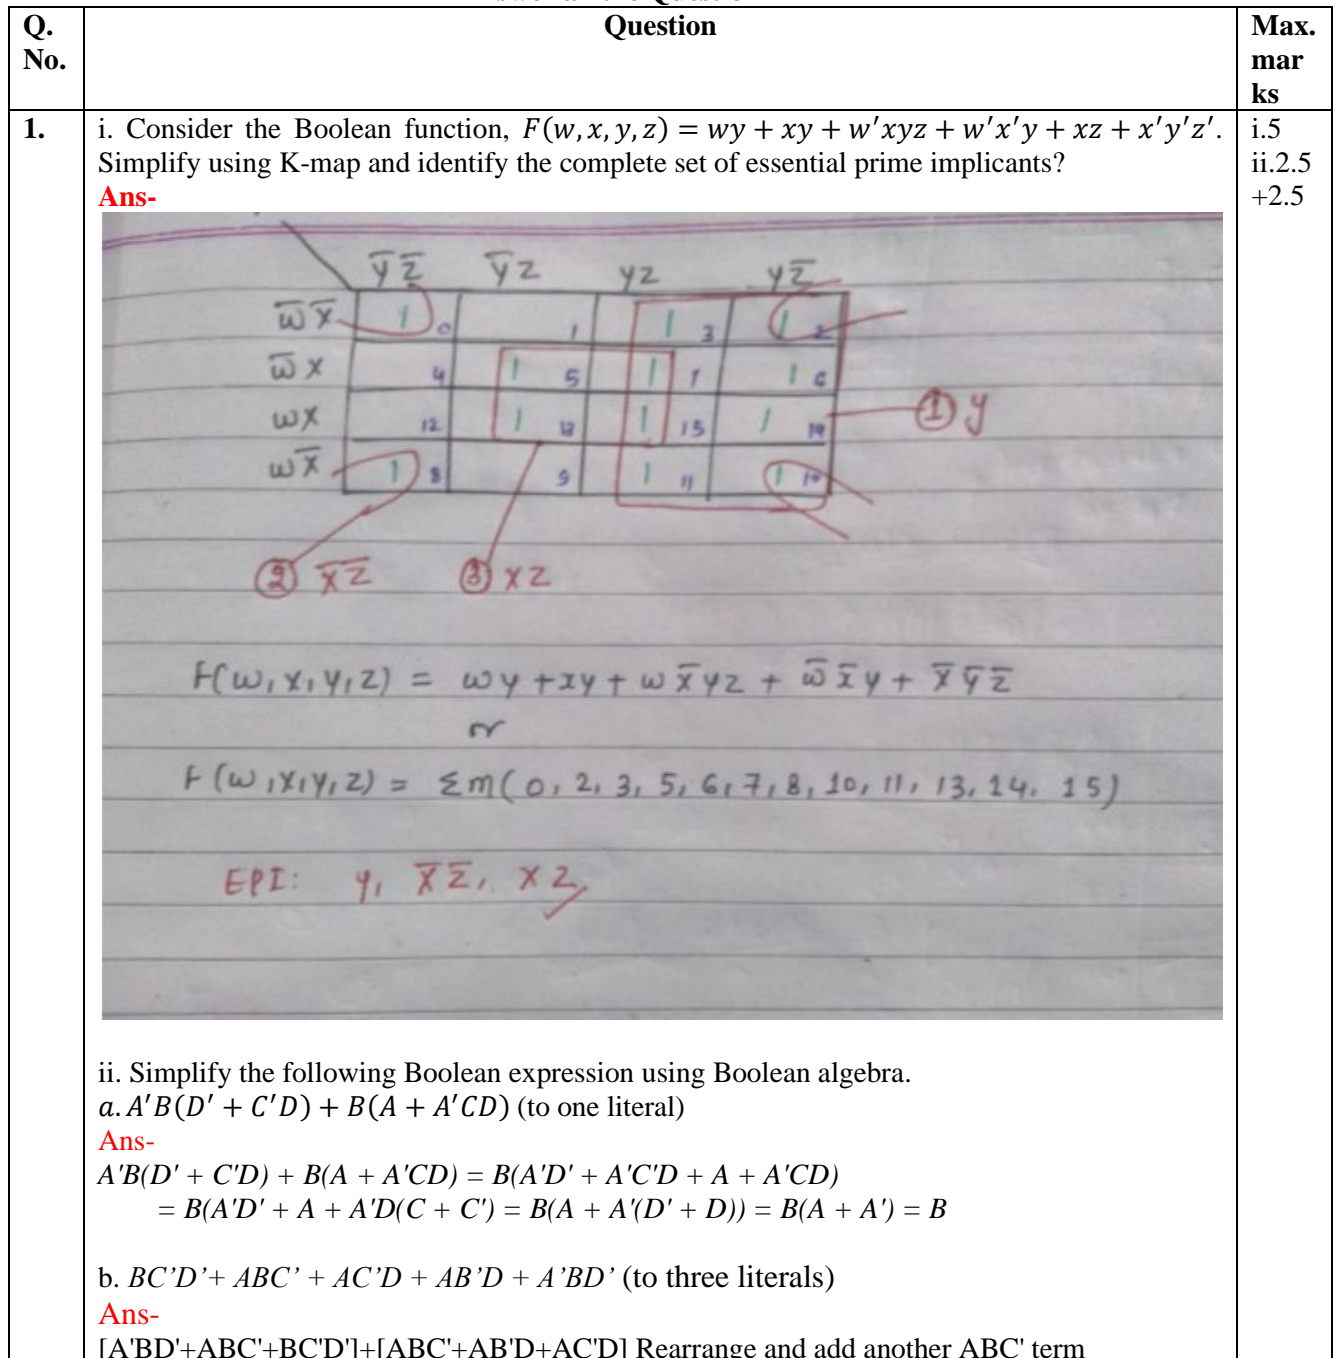 Q. No.
Question
Max. marks
1.
i. Consider the Boolean function, F(w, x, y, z) = wy + xy + w′xyz + w′x′y + xz + x′y′z′.
Simplify using K-map and identify the complete set of essential prime implicants?
i.5
ii.2.5
+2.5
Ans-
y̅ z̅ y̅ z yz y z̅
w̅ x̅ 1 0 1 1 3 1 2
w̅ x 4 1 5 1 7 1 6
wx 12 1 13 1 15 1 14
w x̅ 1 8 9 1 11 1 10
① y
② x̅ z̅ ③ xz
F(w,x,y,z) = wy + xy + w x̅ yz + w̅ x̅ y + x̅ y̅ z̅
or
F(w,x,y,z) = Σm(0, 2, 3, 5, 6, 7, 8, 10, 11, 13, 14, 15)
EPI: y, x̅ z̅, xz
ii. Simplify the following Boolean expression using Boolean algebra.
a. A′B(D′ + C′D) + B(A + A′CD) (to one literal)
Ans-
A'B(D' + C'D) + B(A + A'CD) = B(A'D' + A'C'D + A + A'CD)
= B(A'D' + A + A'D(C + C') = B(A + A'(D' + D)) = B(A + A') = B
b. BC’D’+ ABC’ + AC’D + AB’D + A’BD’ (to three literals)
Ans-
[A'BD'+ABC'+BC'D']+[ABC'+AB'D+AC'D] Rearrange and add another ABC' term